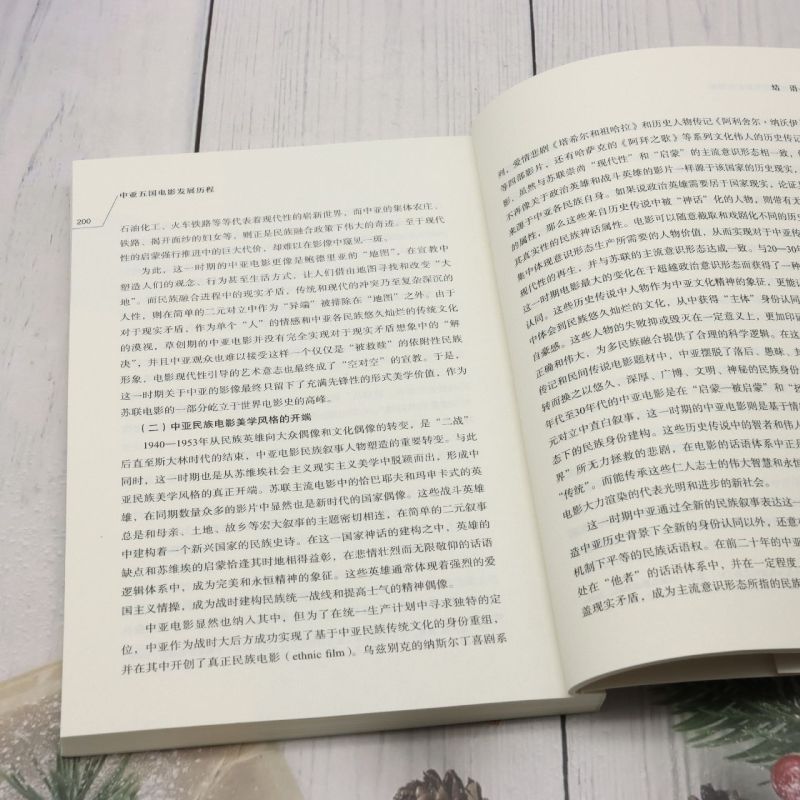 中亚五国电影发展历程
200
石油化工、火车铁路等等代表着现代性的崭新世界，而中亚的集体农庄、
铁路、揭开面纱的妇女等，则正是民族融合政策下伟大的奇迹。至于现代
性的启蒙强行推进中的巨大代价，却难以在影像中窥见一斑。
为此，这一时期的中亚电影更像是鲍德里亚的“地图”，在宣教中
塑造人们的观念、行为甚至生活方式，让人们借由地图寻找和改变“大
地”。而民族融合进程中的现实矛盾，传统和现代的冲突乃至复杂深沉的
人性，则在简单的二元对立中作为“异端”被排除在“地图”之外。由于
对于现实矛盾，作为单个“人”的情感和中亚各民族悠久灿烂的传统文化
的漠视，草创期的中亚电影并没有完全实现对于现实矛盾想象中的“解
决”，并且中亚观众也难以接受这样一个仅仅是“被救赎”的依附性民族
形象，电影现代性引导的艺术意志也最终成了“空对空”的宣教。于是，
这一时期关于中亚的影像最终只留下了充满先锋性的形式美学价值，作为
苏联电影的一部分屹立于世界电影史的高峰。
（二）中亚民族电影美学风格的开端
1940—1953年从民族英雄向大众偶像和文化偶像的转变，是“二战”
后直至斯大林时代的结束，中亚电影民族叙事人物塑造的重要转变。与此
同时，这一时期也是从苏维埃社会主义现实主义美学中脱颖而出，形成中
亚民族美学风格的真正开端。苏联主流电影中的恰巴耶夫和玛申卡式的英
雄，在同期数量众多的影片中显然也是新时代的国家偶像。这些战斗英雄
总是和母亲、土地、故乡等宏大叙事的主题密切相连，在简单的二元叙事
中建构着一个新兴国家的民族史诗。在这一国家神话的建构之中，英雄的
缺点和苏维埃的启蒙恰逢其时地相得益彰，在悲情壮烈而无限敬仰的话语
逻辑体系中，成为完美和永恒精神的象征。这些英雄通常体现着强烈的爱
国主义情操，成为战时建构民族统一战线和提高士气的精神偶像。
中亚电影显然也纳入其中，但为了在统一生产计划中寻求独特的定
位，中亚作为战时大后方成功实现了基于中亚民族传统文化的身份重组，
并在其中开创了真正民族电影（ethnic film）。乌兹别克的纳斯尔丁喜剧系
结 语
列，爱情悲剧《塔希尔和祖哈拉》和历史人物传记《阿利舍尔·纳沃伊
等四部影片，还有哈萨克的《阿拜之歌》等系列文化伟人的历史传记
影，虽然与苏联崇尚“现代性”和“启蒙”的主流意识形态相一致，
不再像关于政治英雄和战斗英雄的影片一样源于该国家的历史现实，
来源于中亚各民族自身。如果说政治英雄需要居于国家现实，论证
的属性，那么这些来自历史传说中被“神话”化的人物，则带有无
其真实性的民族神话属性。电影可以随意截取和戏剧化不同的历史
集中体现意识形态生产所需要的人物价值，从而实现对于中亚传
现代性的再生，并与苏联的主流意识形态达成一致。与20—30年
这一时期电影最大的变化在于超越政治意识形态而获得了一种
认同。这些历史传说中人物作为中亚文化精神的象征，更能让
中体会到民族悠久灿烂的文化，从中获得“主体”身份认同
自豪感。这些人物的失败抑或毁灭在一定意义上，更加印证
正确和伟大，为多民族融合提供了合理的科学逻辑。在这
传记和民间传说电影题材中，中亚摆脱了落后、愚昧、封
转而换之以悠久、深厚、广博、文明、神秘的民族身份
年代至30年代的中亚电影是在“启蒙—被启蒙”和“拯
元对立中直白叙事，这一时期的中亚电影则是基于情
态下的民族身份建构。这些历史传说中的智者和伟人
界”所无力拯救的悲剧，在电影的话语体系中正是
“传统”。而能传承这些仁人志士的伟大智慧和永恒
电影大力渲染的代表光明和进步的新社会。
这一时期中亚通过全新的民族叙事表达这一
造中亚历史背景下全新的身份认同以外，还意
机制下平等的民族话语权。在前二十年的中亚
处在“他者”的话语体系中，并在一定程度
盖现实矛盾，成为主流意识形态所指的民族